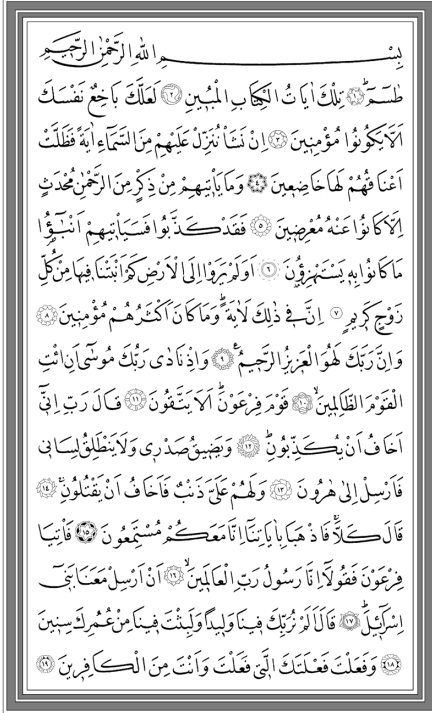 بِسْمِ اللهِ الرَّحْمٰنِ الرَّحِيمِ
طٰسٓمٓ ﴿١﴾ تِلْكَ اٰيَاتُ الْكِتَابِ الْمُبِينِ ﴿٢﴾ لَعَلَّكَ بَاخِعٌ نَفْسَكَ
اَلَّا يَكُونُوا مُؤْمِنِينَ ﴿٣﴾ اِنْ نَشَأْ نُنَزِّلْ عَلَيْهِمْ مِنَ السَّمَٓاءِ اٰيَةً فَظَلَّتْ
اَعْنَاقُهُمْ لَهَا خَاضِعِينَ ﴿٤﴾ وَمَا يَأْتِيهِمْ مِنْ ذِكْرٍ مِنَ الرَّحْمٰنِ مُحْدَثٍ
اِلَّا كَانُوا عَنْهُ مُعْرِضِينَ ﴿٥﴾ فَقَدْ كَذَّبُوا فَسَيَأْتِيهِمْ اَنْبٰٓؤُا
مَا كَانُوا بِهِ يَسْتَهْزِؤُنَ ﴿٦﴾ اَوَلَمْ يَرَوْا اِلَى الْاَرْضِ كَمْ اَنْبَتْنَا فِيهَا مِنْ كُلِّ
زَوْجٍ كَرِيمٍ ﴿٧﴾ اِنَّ فِي ذٰلِكَ لَاٰيَةً وَمَا كَانَ اَكْثَرُهُمْ مُؤْمِنِينَ ﴿٨﴾
وَاِنَّ رَبَّكَ لَهُوَ الْعَزِيزُ الرَّحِيمُ ﴿٩﴾ وَاِذْ نَادٰى رَبُّكَ مُوسٰٓى اَنِ ائْتِ
الْقَوْمَ الظَّالِمِينَ ﴿١٠﴾ قَوْمَ فِرْعَوْنَ اَلَا يَتَّقُونَ ﴿١١﴾ قَالَ رَبِّ اِنِّٓي
اَخَافُ اَنْ يُكَذِّبُونِ ﴿١٢﴾ وَيَضِيقُ صَدْرِي وَلَا يَنْطَلِقُ لِسَانِي
فَاَرْسِلْ اِلٰى هٰرُونَ ﴿١٣﴾ وَلَهُمْ عَلَيَّ ذَنْبٌ فَاَخَافُ اَنْ يَقْتُلُونِ ﴿١٤﴾
قَالَ كَلَّا فَاذْهَبَا بِاٰيَاتِنَٓا اِنَّا مَعَكُمْ مُسْتَمِعُونَ ﴿١٥﴾ فَأْتِيَا
فِرْعَوْنَ فَقُولَٓا اِنَّا رَسُولُ رَبِّ الْعَالَمِينَ ﴿١٦﴾ اَنْ اَرْسِلْ مَعَنَا بَنِٓي
اِسْرَٓائِيلَ ﴿١٧﴾ قَالَ اَلَمْ نُرَبِّكَ فِينَا وَلِيدًا وَلَبِثْتَ فِينَا مِنْ عُمُرِكَ سِنِينَ
﴿١٨﴾ وَفَعَلْتَ فَعْلَتَكَ الَّتِي فَعَلْتَ وَاَنْتَ مِنَ الْكَافِرِينَ ﴿١٩﴾